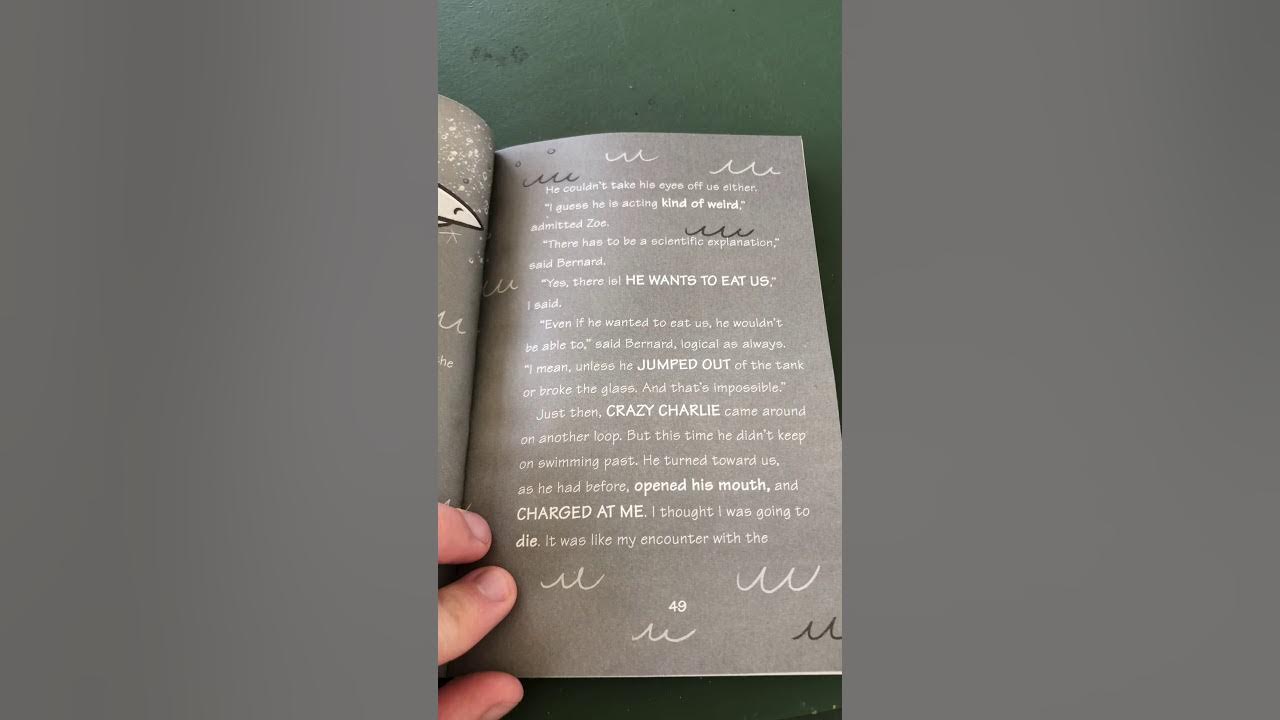 he
He couldn't take his eyes off us either.
"I guess he is acting kind of weird,"
admitted Zoe.
"There has to be a scientific explanation,"
said Bernard.
"Yes, there is! HE WANTS TO EAT US,"
I said.
"Even if he wanted to eat us, he wouldn't
be able to," said Bernard, logical as always.
"I mean, unless he JUMPED OUT of the tank
or broke the glass. And that's impossible."
Just then, CRAZY CHARLIE came around
on another loop. But this time he didn't keep
on swimming past. He turned toward us,
as he had before, opened his mouth, and
CHARGED AT ME. I thought I was going to
die. It was like my encounter with the
49